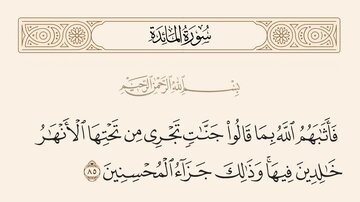 سُورَةُ المَائِدَةِ
بِسْمِ اللَّهِ الرَّحْمَٰنِ الرَّحِيمِ
فَأَثَٰبَهُمُ ٱللَّهُ بِمَا قَالُوا۟ جَنَّٰتٍ تَجْرِى مِن تَحْتِهَا ٱلْأَنْهَٰرُ
خَٰلِدِينَ فِيهَا ۚ وَذَٰلِكَ جَزَآءُ ٱلْمُحْسِنِينَ ٨٥